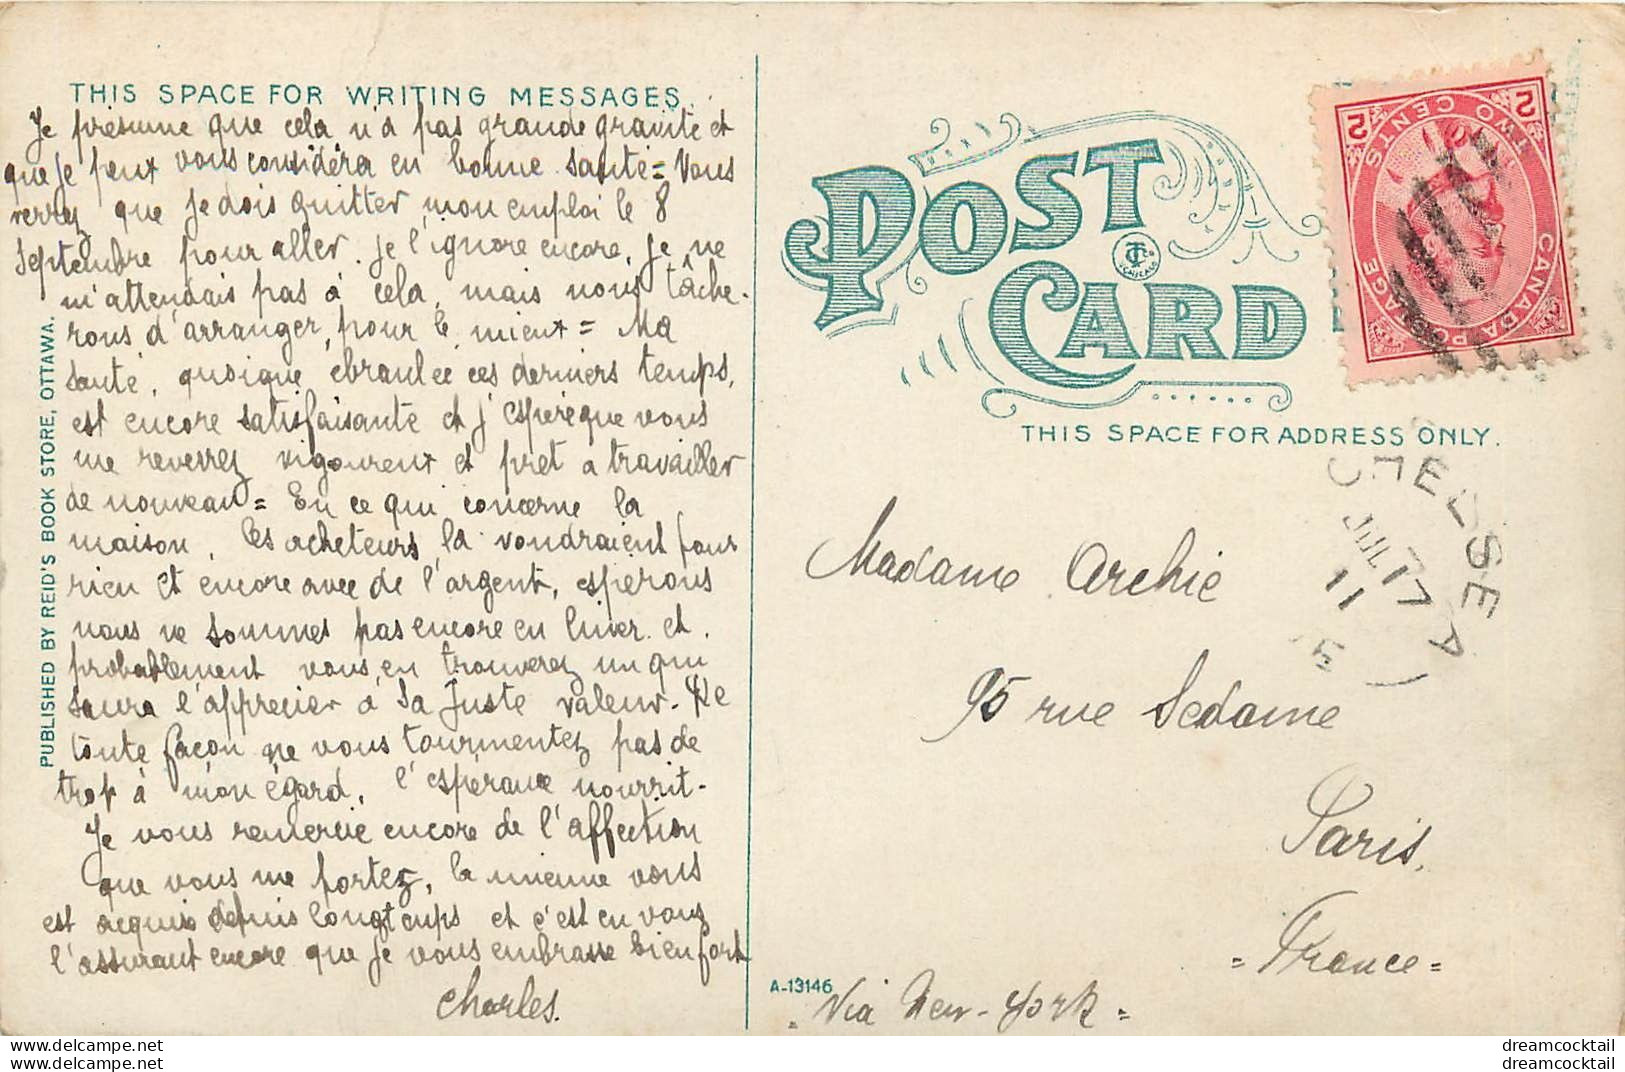 THIS SPACE FOR WRITING MESSAGES.
Je présume que cela n'a pas grande gravité et
que je peux vous considéra en bonne santé = Vous
verrez que je dois quitter mon emploi le 8
Septembre pour aller. je l'ignore encore, je ne
m'attendais pas à cela, mais nous tâche-
rons d'arranger, pour le mieux = Ma
santé, quoique ébranlée ces derniers temps,
est encore satisfaisante et j'espère que vous
me reverrez vigoureux et prêt a travailler
de nouveau = En ce qui concerne la
maison, les acheteurs la voudraient pour
rien et encore avec de l'argent, espérons
nous ne sommes pas encore en hiver et,
probablement vous en trouverez un qui
saura l'apprecier à sa juste valeur. De
toute façon ne vous tourmentez pas de
trop à mon égard, l'espérance nourrit.
Je vous remercie encore de l'affection
que vous me portez, la mienne vous
est acquise depuis longtemps et c'est en vous
l'assurant encore que je vous embrasse bien fort
Charles.
PUBLISHED BY REID'S BOOK STORE, OTTAWA.
POST
CARD
THIS SPACE FOR ADDRESS ONLY.
CANADA POSTAGE
TWO CENTS
2
2
CHELSEA
JUL 17
11
Madame Archie
95 rue Sedaine
Paris.
= France =
A-13146
= Via New-York =
dreamcocktail
dreamcocktail
dreamcocktail
dreamcocktail